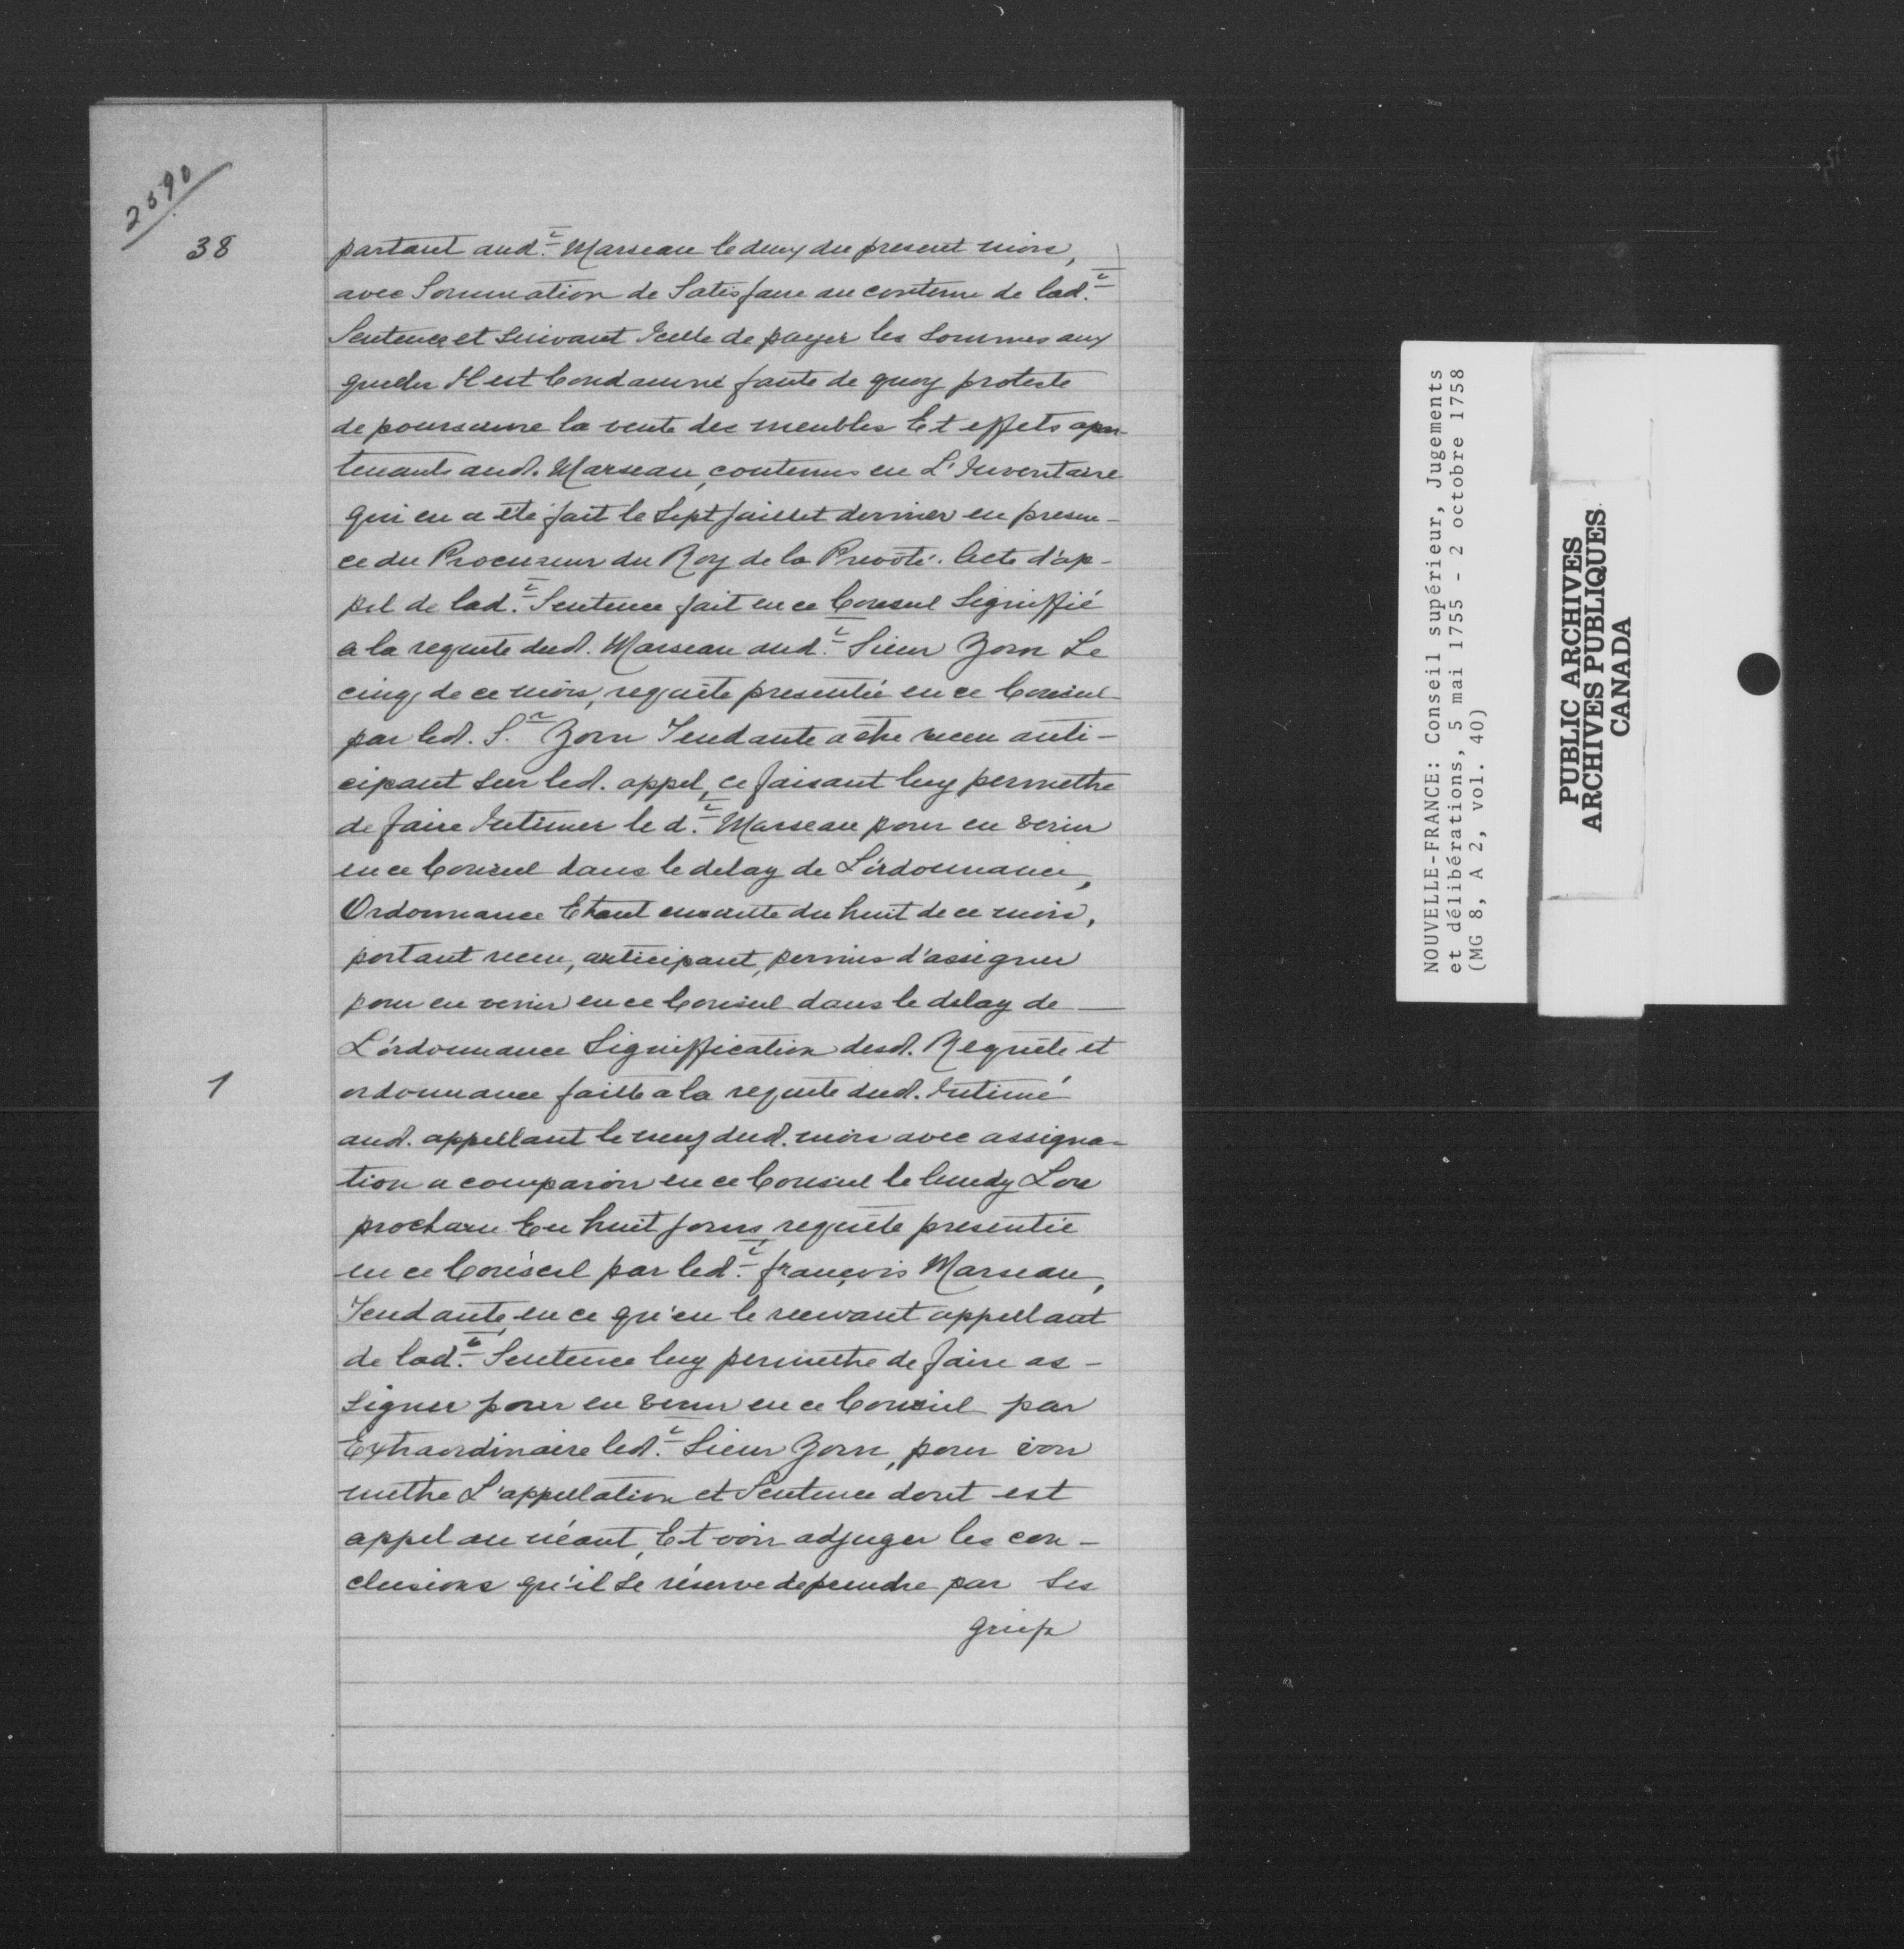 2590
38
partant aud.t Marseau le deux du present mois,
avec Sommation de Satisfaire au contenu de lad.t
Sentence et Suivant Icelle de payer les Sommes aux
quelles Il est Condamné faute de quoy proteste
de poursuivre la vente des meubles Et effets apar-
tenants aud. Marseau, contenus en L'Inventaire
qui en a été fait le Sept juillet dernier en presen-
ce du Procureur du Roy de la Prevôté. Acte d'ap-
pel de lad.t Sentence fait en ce Conseil Signiffié
a la requete dud. Marseau aud.t Sieur Zorn Le
cinq, de ce mois, requête presentée en ce Conseil
par led. S.r Zorn Tendante a être receu anti-
cipant Sur led. appel, ce faisant luy permettre
de faire Intimer le d.t Marseau pour en venir
en ce Conseil dans le delay de L'ordonnance,
Ordonnance Etant ensuitte du huit de ce mois,
portant receu, anticipant, permis d'assigner
pour en venir en ce Conseil dans le delay de —
L'ordonnance Signiffication desd. Requête et
1
ordonnance faitte a la requete dud. Intimé
aud. appellant le neuf dud. mois avec assigna-
tion a comparoir en ce Conseil le lundy Lors
prochain En huit jours, requête presentée
en ce Conseil par led.t françois Marseau,
Tendante, en ce qu'en le recevant appellant
de lad.t Sentence luy permettre de faire as-
Signer pour en venir en ce Conseil par
Extraordinaire led.t Sieur Zorn, pour voir
mettre L'appellation et Sentence dont est
appel au néant, Et voir adjuger les con-
clusions qu'il Se réserve de prendre par Ses
griefs
NOUVELLE-FRANCE: Conseil supérieur, Jugements
et délibérations, 5 mai 1755 - 2 octobre 1758
(MG 8, A 2, vol. 40)
PUBLIC ARCHIVES
ARCHIVES PUBLIQUES
CANADA